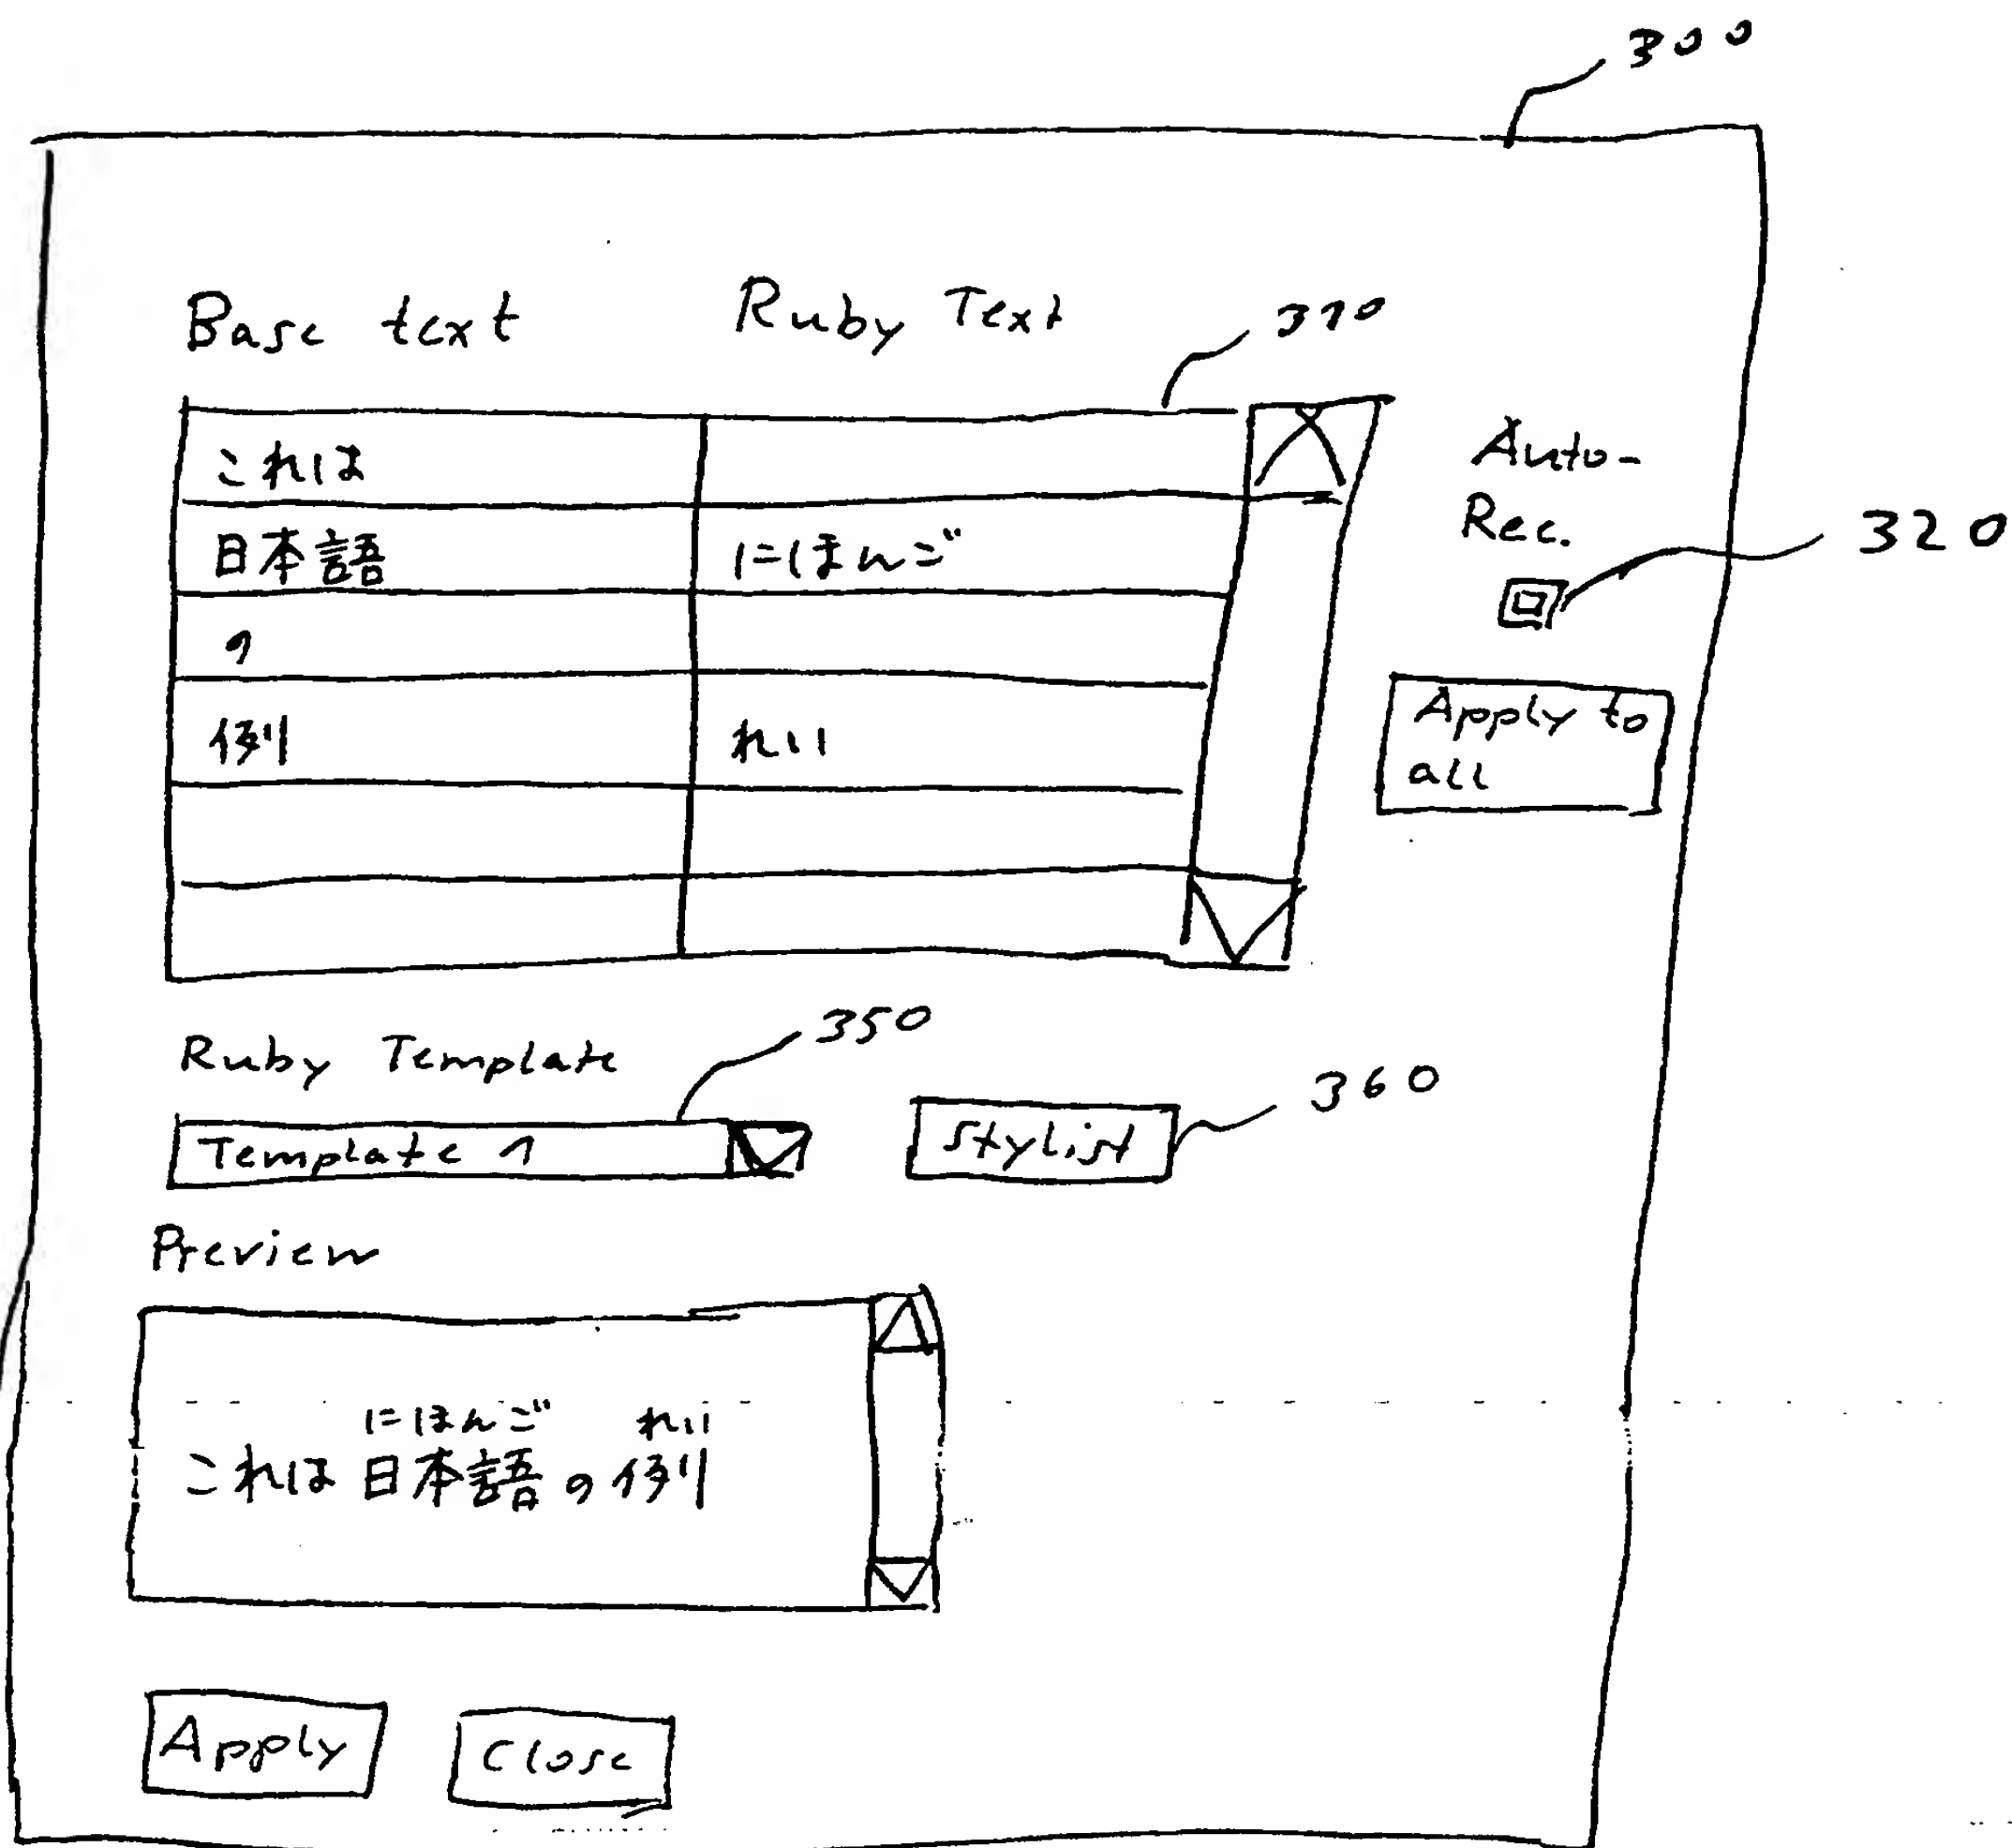 300
Base text Ruby Text 310
これは
日本語 にほんご
の
例 れい
Auto-
Rec.
320
Apply to
all
Ruby Template 350
Template 1 Stylist 360
Preview
にほんご れい
これは日本語の例
Apply Close